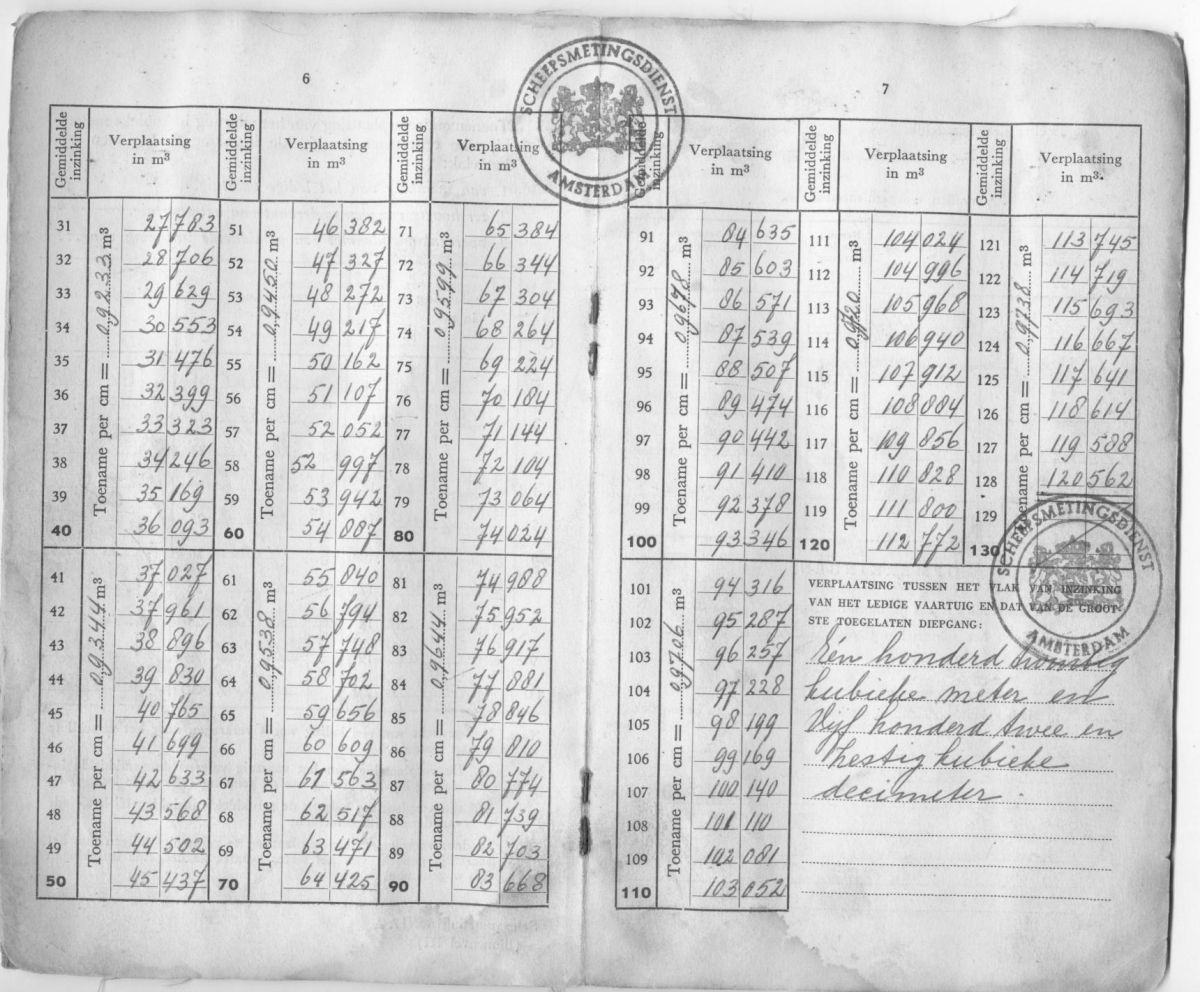 6
SCHEEPSMETINGSDIENST
AMSTERDAM
Gemiddelde inzinking Verplaatsing in m³ Gemiddelde inzinking Verplaatsing in m³ Gemiddelde inzinking Verplaatsing in m³
Toename per cm = 0,9233 m³ Toename per cm = 0,9450 m³ Toename per cm = 0,9599 m³
31 27 783 51 46 382 71 65 384
32 28 706 52 47 327 72 66 344
33 29 629 53 48 272 73 67 304
34 30 553 54 49 217 74 68 264
35 31 476 55 50 162 75 69 224
36 32 399 56 51 107 76 70 184
37 33 323 57 52 052 77 71 144
38 34 246 58 52 997 78 72 104
39 35 169 59 53 942 79 73 064
40 36 093 60 54 887 80 74 024
Toename per cm = 0,9344 m³ Toename per cm = 0,9538 m³ Toename per cm = 0,9644 m³
41 37 027 61 55 840 81 74 988
42 37 961 62 56 794 82 75 952
43 38 896 63 57 748 83 76 917
44 39 830 64 58 702 84 77 881
45 40 765 65 59 656 85 78 846
46 41 699 66 60 609 86 79 810
47 42 633 67 61 563 87 80 774
48 43 568 68 62 517 88 81 739
49 44 502 69 63 471 89 82 703
50 45 437 70 64 425 90 83 668
7
Gemiddelde inzinking Verplaatsing in m³ Gemiddelde inzinking Verplaatsing in m³ Gemiddelde inzinking Verplaatsing in m³
Toename per cm = 0,9678 m³ Toename per cm = 0,9720 m³ Toename per cm = 0,9738 m³
91 84 635 111 104 024 121 113 745
92 85 603 112 104 996 122 114 719
93 86 571 113 105 968 123 115 693
94 87 539 114 106 940 124 116 667
95 88 507 115 107 912 125 117 641
96 89 474 116 108 884 126 118 614
97 90 442 117 109 856 127 119 588
98 91 410 118 110 828 128 120 562
99 92 378 119 111 800 129
100 93 346 120 112 772 130
Toename per cm = 0,9706 m³
101 94 316
102 95 287
103 96 257
104 97 228
105 98 199
106 99 169
107 100 140
108 101 110
109 102 081
110 103 052
SCHEEPSMETINGSDIENST
AMSTERDAM
VERPLAATSING TUSSEN HET VLAK VAN INZINKING
VAN HET LEDIGE VAARTUIG EN DAT VAN DE GROOT-
STE TOEGELATEN DIEPGANG:
Eén honderd twintig
kubieke meter en
Vijf honderd twee en
zestig kubieke
decimeter.